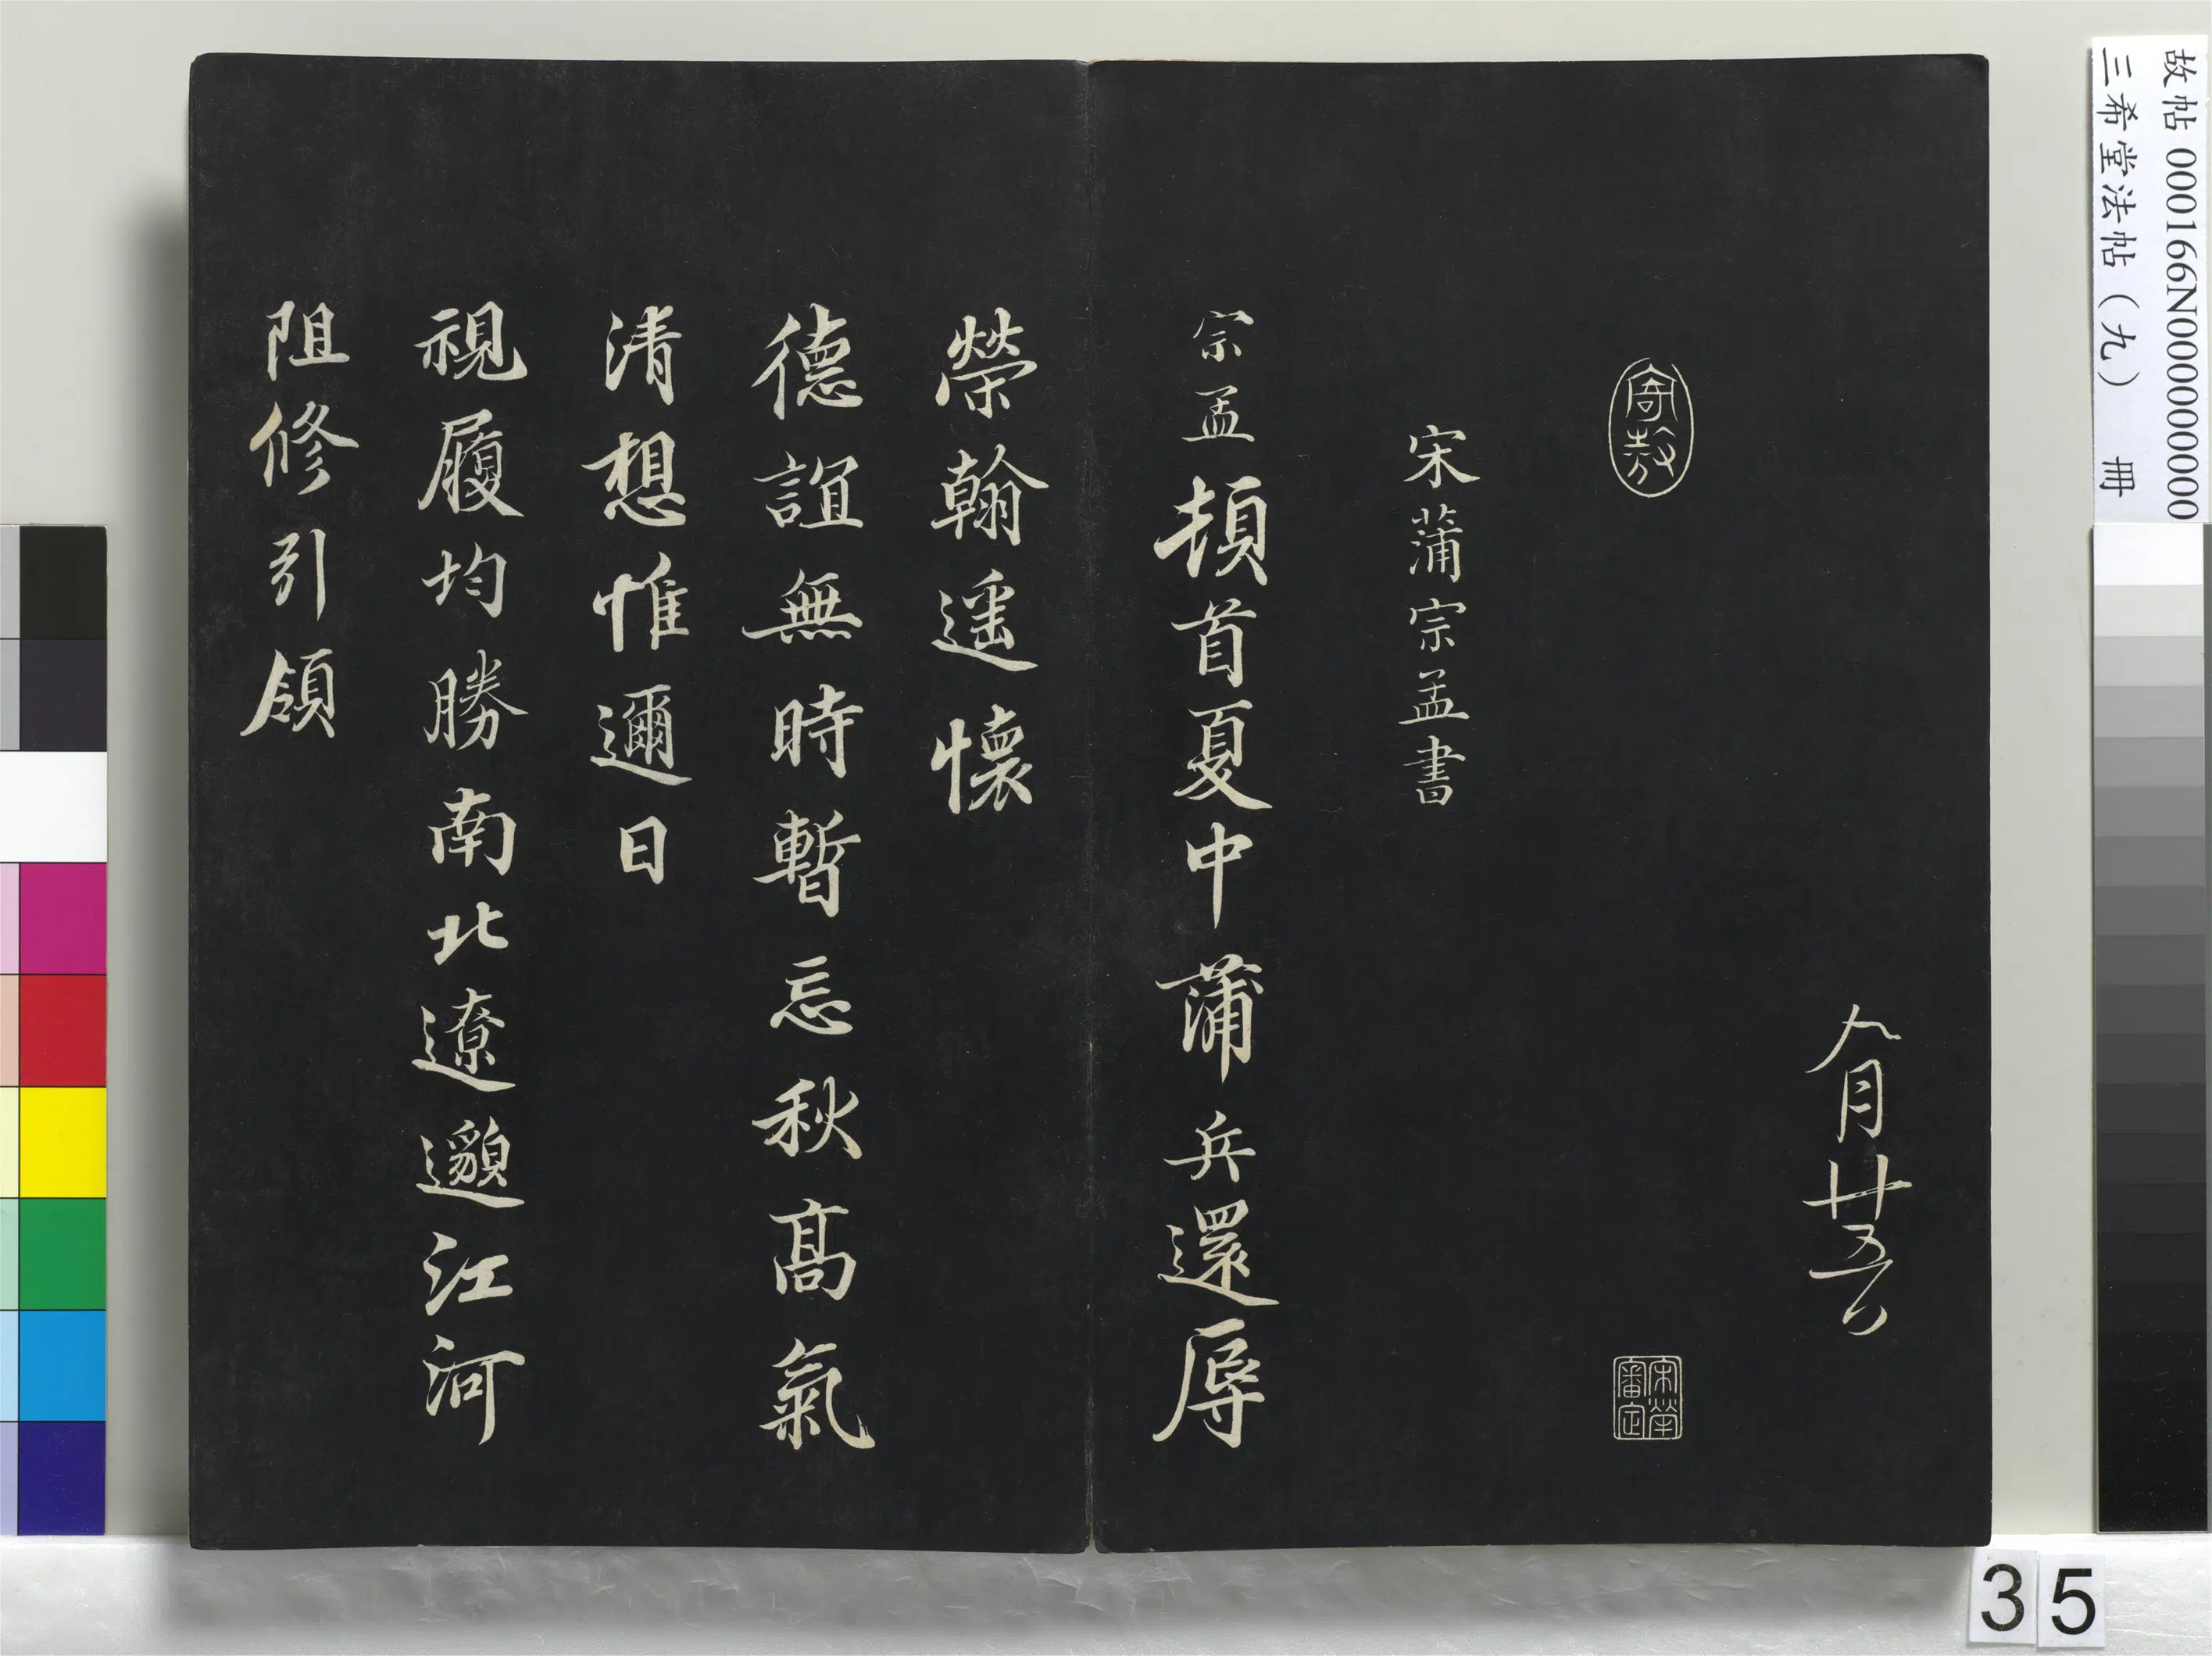 故帖 000166N000000000
三希堂法帖（九） 冊
八月廿五日
宋犖審定
宋蒲宗孟書
宗孟頓首夏中蒲兵還辱
榮翰遥懷
德誼無時暫忘秋髙氣
清想惟邇日
視履均勝南北遼邈江河
阻修引領
35